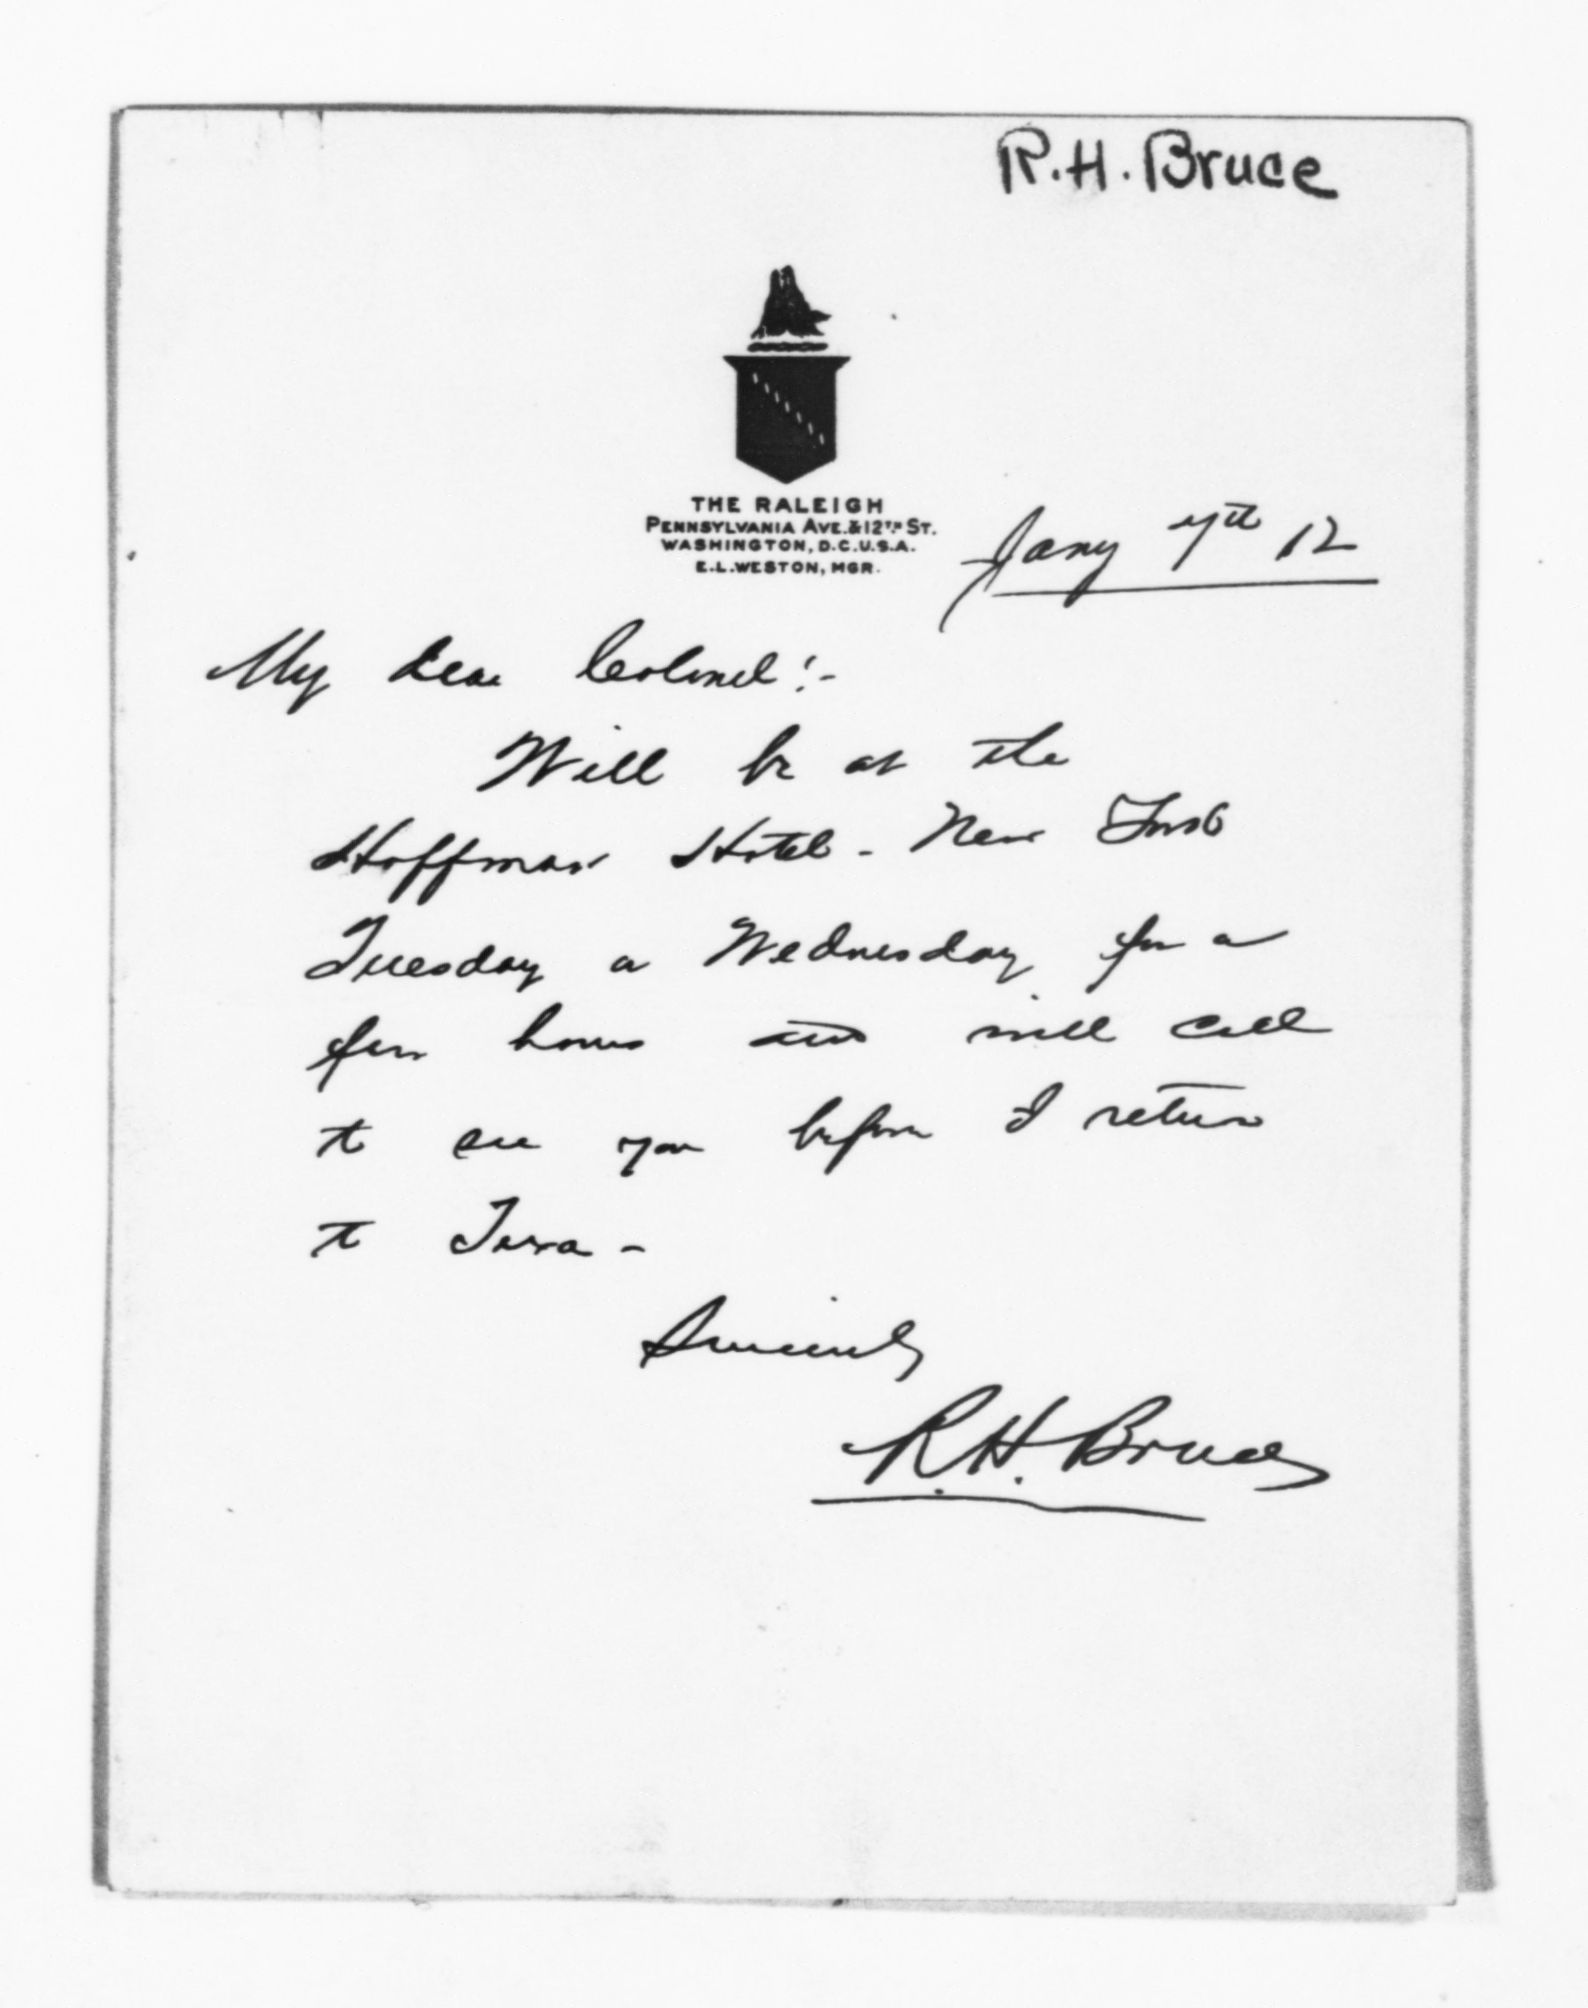 R.H. Bruce
THE RALEIGH
PENNSYLVANIA AVE. & 12TH ST.
WASHINGTON, D.C. U.S.A.
E.L. WESTON, MGR.
Jany 7th 12
My dear Colonel:-
Will be at the
Hoffman Hotel - New York
Tuesday or Wednesday for a
few hours and will call
to see you before I return
to Texas -
Sincerely
R.H. Bruce